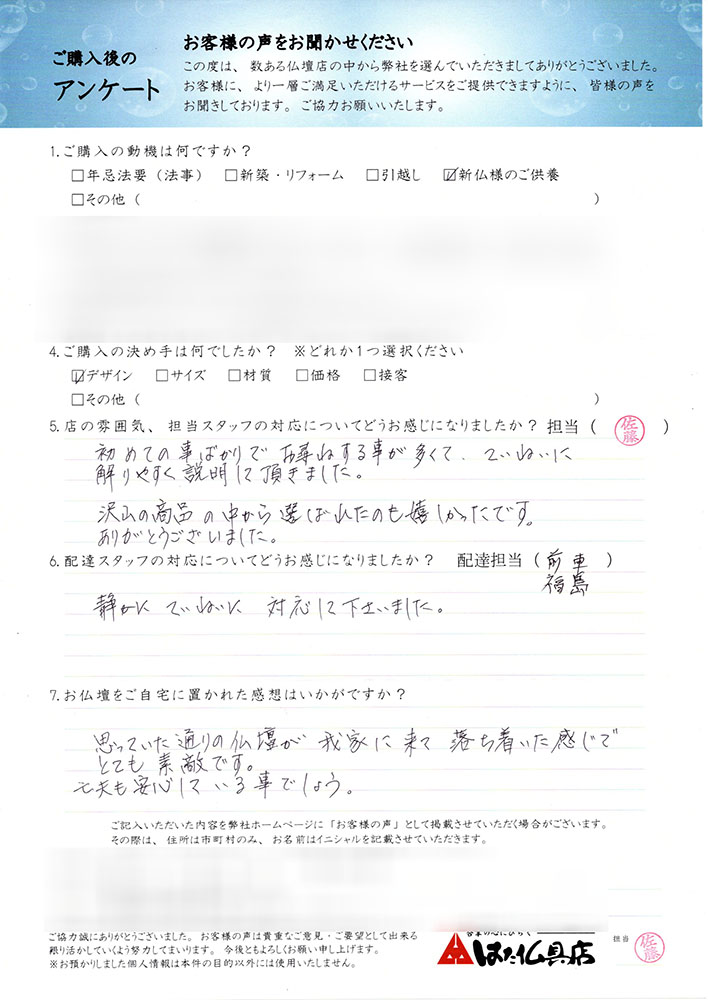 ご購入後の
アンケート
お客様の声をお聞かせください
この度は、数ある仏壇店の中から弊社を選んでいただきましてありがとうございました。
お客様に、より一層ご満足いただけるサービスをご提供できますように、皆様の声を
お聞きしております。ご協力お願いいたします。
1.ご購入の動機は何ですか？
□年忌法要（法事） □新築・リフォーム □引越し ☑新仏様のご供養
□その他（ ）
4.ご購入の決め手は何でしたか？ ※どれか1つ選択ください
☑デザイン □サイズ □材質 □価格 □接客
□その他（ ）
5.店の雰囲気、担当スタッフの対応についてどうお感じになりましたか？ 担当（ 佐藤 ）
初めての事ばかりでお尋ねする事が多くて、ていねいに
解りやすく説明して頂きました。
沢山の商品の中から選ばれたのも嬉しかったです。
ありがとうございました。
6.配達スタッフの対応についてどうお感じになりましたか？ 配達担当（ 前車 ）
福島
静かに ていねいに 対応して下さいました。
7.お仏壇をご自宅に置かれた感想はいかがですか？
思っていた通りの仏壇が 我家に来て 落ち着いた感じで
とても 素敵です。
亡夫も安心している事でしょう。
ご記入いただいた内容を弊社ホームページに「お客様の声」として掲載させていただく場合がございます。
その際は、住所は市町村のみ、お名前はイニシャルを記載させていただきます。
ご協力誠にありがとうございました。お客様の声は貴重なご意見・ご要望として出来る
限り活かしていくよう努力してまいります。今後ともよろしくお願い申し上げます。
※お預かりしました個人情報は本件の目的以外には使用いたしません。
はた仏具店
担当 佐藤